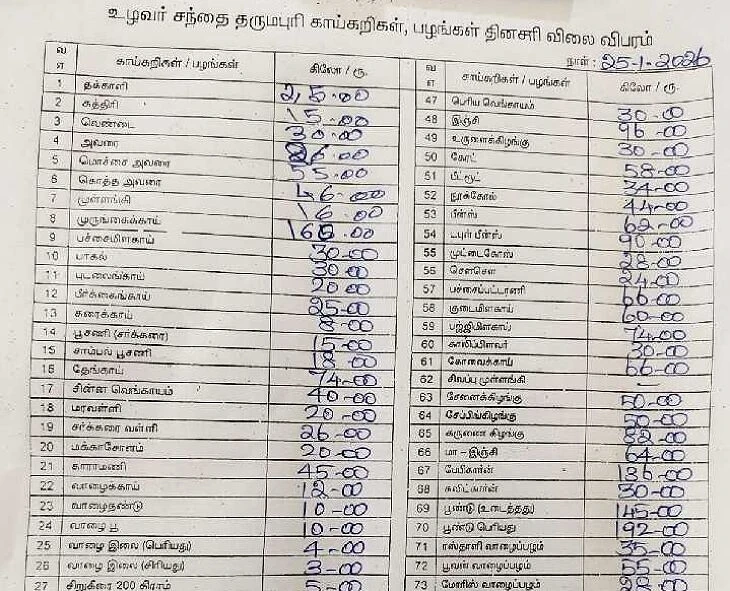 உழவர் சந்தை தருமபுரி காய்கறிகள், பழங்கள் தினசரி விலை விபரம்
நாள் : 25-1-2026
வ எ காய்கறிகள் / பழங்கள் கிலோ / ரூ.
1 தக்காளி 25.00
2 கத்திரி 15.00
3 வெண்டை 30.00
4 அவரை 26.00
5 மொச்சை அவரை 55.00
6 கொத்த அவரை 46.00
7 முள்ளங்கி 16.00
8 முருங்கைக்காய் 160.00
9 பச்சைமிளகாய் 30-00
10 பாகல் 30.00
11 புடலைங்காய் 20.00
12 பீர்க்கைங்காய் 25-00
13 சுரைக்காய் 8-00
14 பூசணி (சர்க்கரை) 15-00
15 சாம்பல் பூசணி 18-00
16 தேங்காய் 74-00
17 சின்ன வெங்காயம் 40-00
18 மரவள்ளி 20-00
19 சர்க்கரை வள்ளி 26-00
20 மக்காசோளம் 20-00
21 காராமணி 45-00
22 வாழைக்காய் 12-00
23 வாழைநண்டு 10-00
24 வாழை பூ 10-00
25 வாழை இலை (பெரியது) 4-00
26 வாழை இலை (சிரியது) 3-00
27 சிறுகீரை 200 கிராம் 5-00
வ எ காய்கறிகள் / பழங்கள் கிலோ / ரூ.
47 பெரிய வெங்காயம் 30-00
48 இஞ்சி 96-00
49 உருளைக்கிழங்கு 30-00
50 கேரட் 58-00
51 பீட்ரூட் 34-00
52 நூக்கோல் 44-00
53 பீன்ஸ் 62-00
54 டபுள் பீன்ஸ் 90-00
55 முட்டைகோஸ் 28-00
56 சௌசௌ 24-00
57 பச்சைப்பட்டாணி 66-00
58 குடைமிளகாய் 60-00
59 பஜ்ஜிமிளகாய் 74-00
60 காலிபிளவர் 30-00
61 கோவைக்காய் 66-00
62 சிவப்பு முள்ளங்கி –
63 சேனைக்கிழங்கு 50-00
64 சேப்பங்கிழங்கு 50-00
65 கருணை கிழங்கு 82-00
66 மா – இஞ்சி 64-00
67 பேபிகார்ன் 136-00
68 சுவிட்கார்ன் 30-00
69 பூண்டு (உடைத்தது) 145-00
70 பூண்டு பெரியது 192-00
71 ரஸ்தாளி வாழைப்பழம் 35-00
72 பூவன் வாழைப்பழம் 55-00
73 மோரிஸ் வாழைப்பழம் 28-00